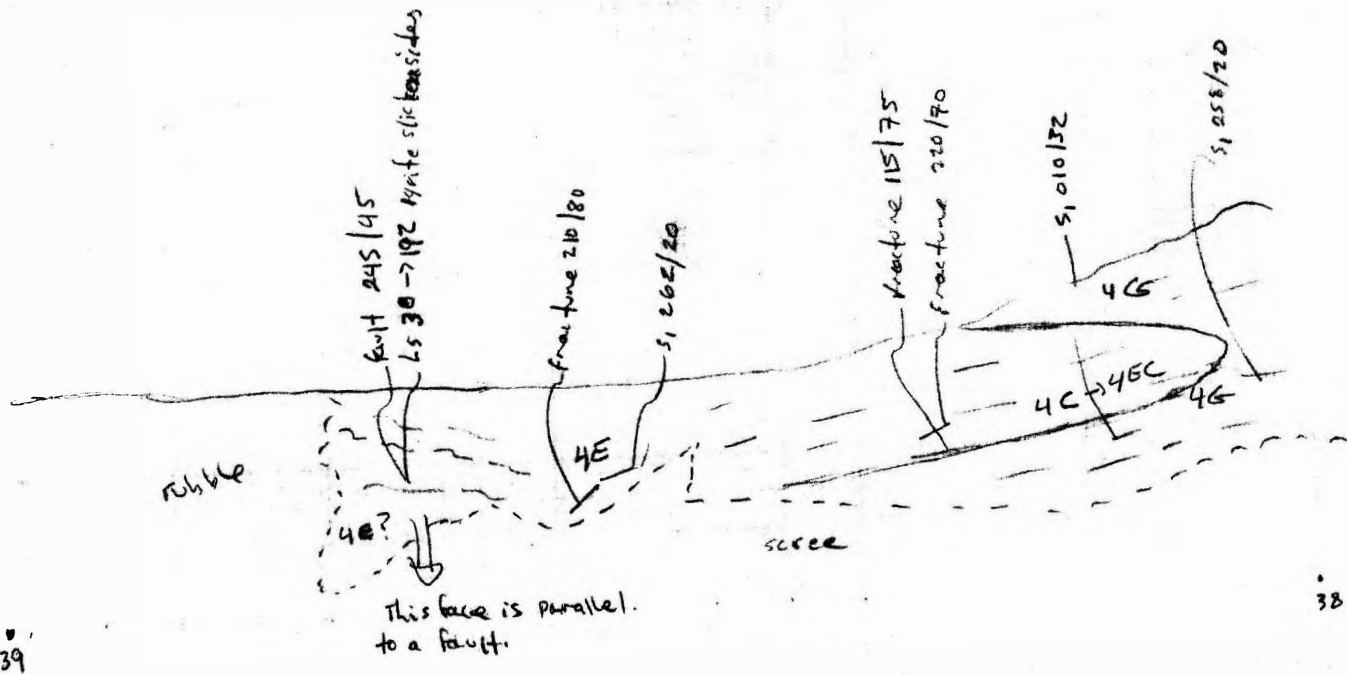 fault 245/45
Ls 30 → 192 pyrite slickensides
fracture 210/80
S, 262/20
fracture 115/75
fracture 220/90
S, 010/32
S, 258/20
4G
4C → 4EC
4G
4E
rubble
4E?
scree
This face is parallel.
to a fault.
39
38